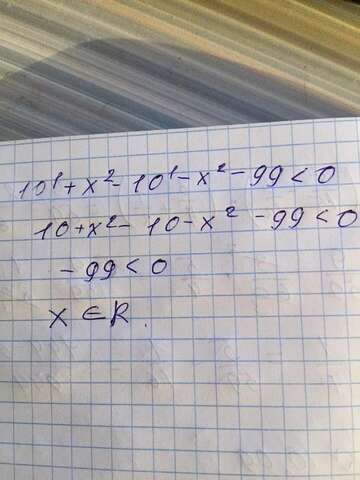 10¹+x²-10¹-x²-99<0
10+x²-10-x²-99<0
-99<0
x∈R.